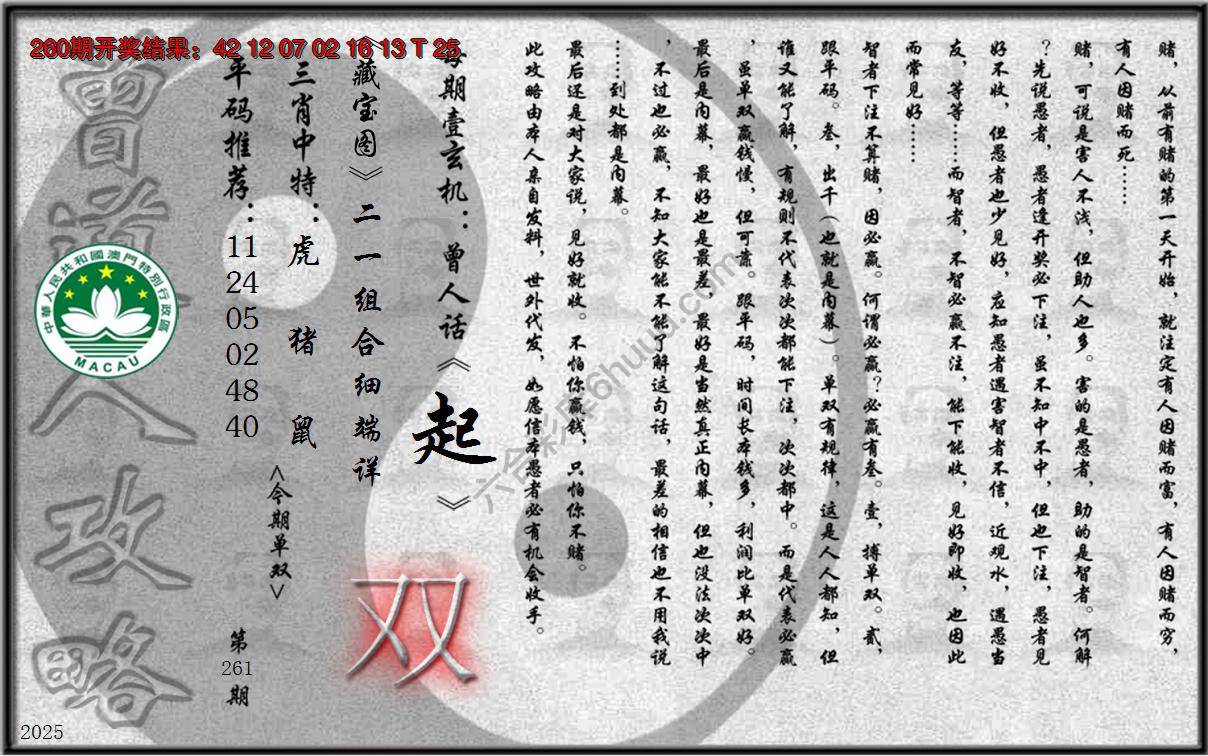 260期开奖结果：42 12 07 02 16 13 T 25
赌，从前有赌的第一天开始，就注定有人因赌而富，有人因赌而穷，
有人因赌而死……
赌，可说是害人不浅，但助人也多。害的是愚者，助的是智者。何解
？先说愚者，愚者逢开奖必下注，虽不知中不中，但也下注，愚者见
好不收，但愚者也少见好，应知愚者遇害智者不信，近观水，遇愚当
友，等等……而智者，不智必赢不注，能下能收，见好即收，也因此
而常见好……
智者下注不算赌，因必赢。何谓必赢？必赢有叁。壹，搏单双。贰，
跟平码。叁，出千（也就是内幕）。单双有规律，这是人人都知，但
谁又能了解，有规则不代表次次都能下注，次次都中。而是代表必赢
，虽单双赢钱慢，但可靠。跟平码，时间长本钱多，利润比单双好。
最后是内幕，最好也是最差，最好是当然真正内幕，但也没法次次中
，不过也必赢，不知大家能不能了解这句话，最差的相信也不用我说
……到处都是内幕。
最后还是对大家说，见好就收。不怕你赢钱，只怕你不赌。
此攻略由本人亲自发料，世外代发，如愿信本愚者必有机会收手。
每期壹玄机：曾人话《起》
《藏宝图》二一组合细端详
双
三肖中特：虎 猪 鼠
<今期单双>
平码推荐：11 24 05 02 48 40
第261期
曾道人攻略
中華人民共和國澳門特別行政區
MACAU
六合彩库6huuu.com
2025